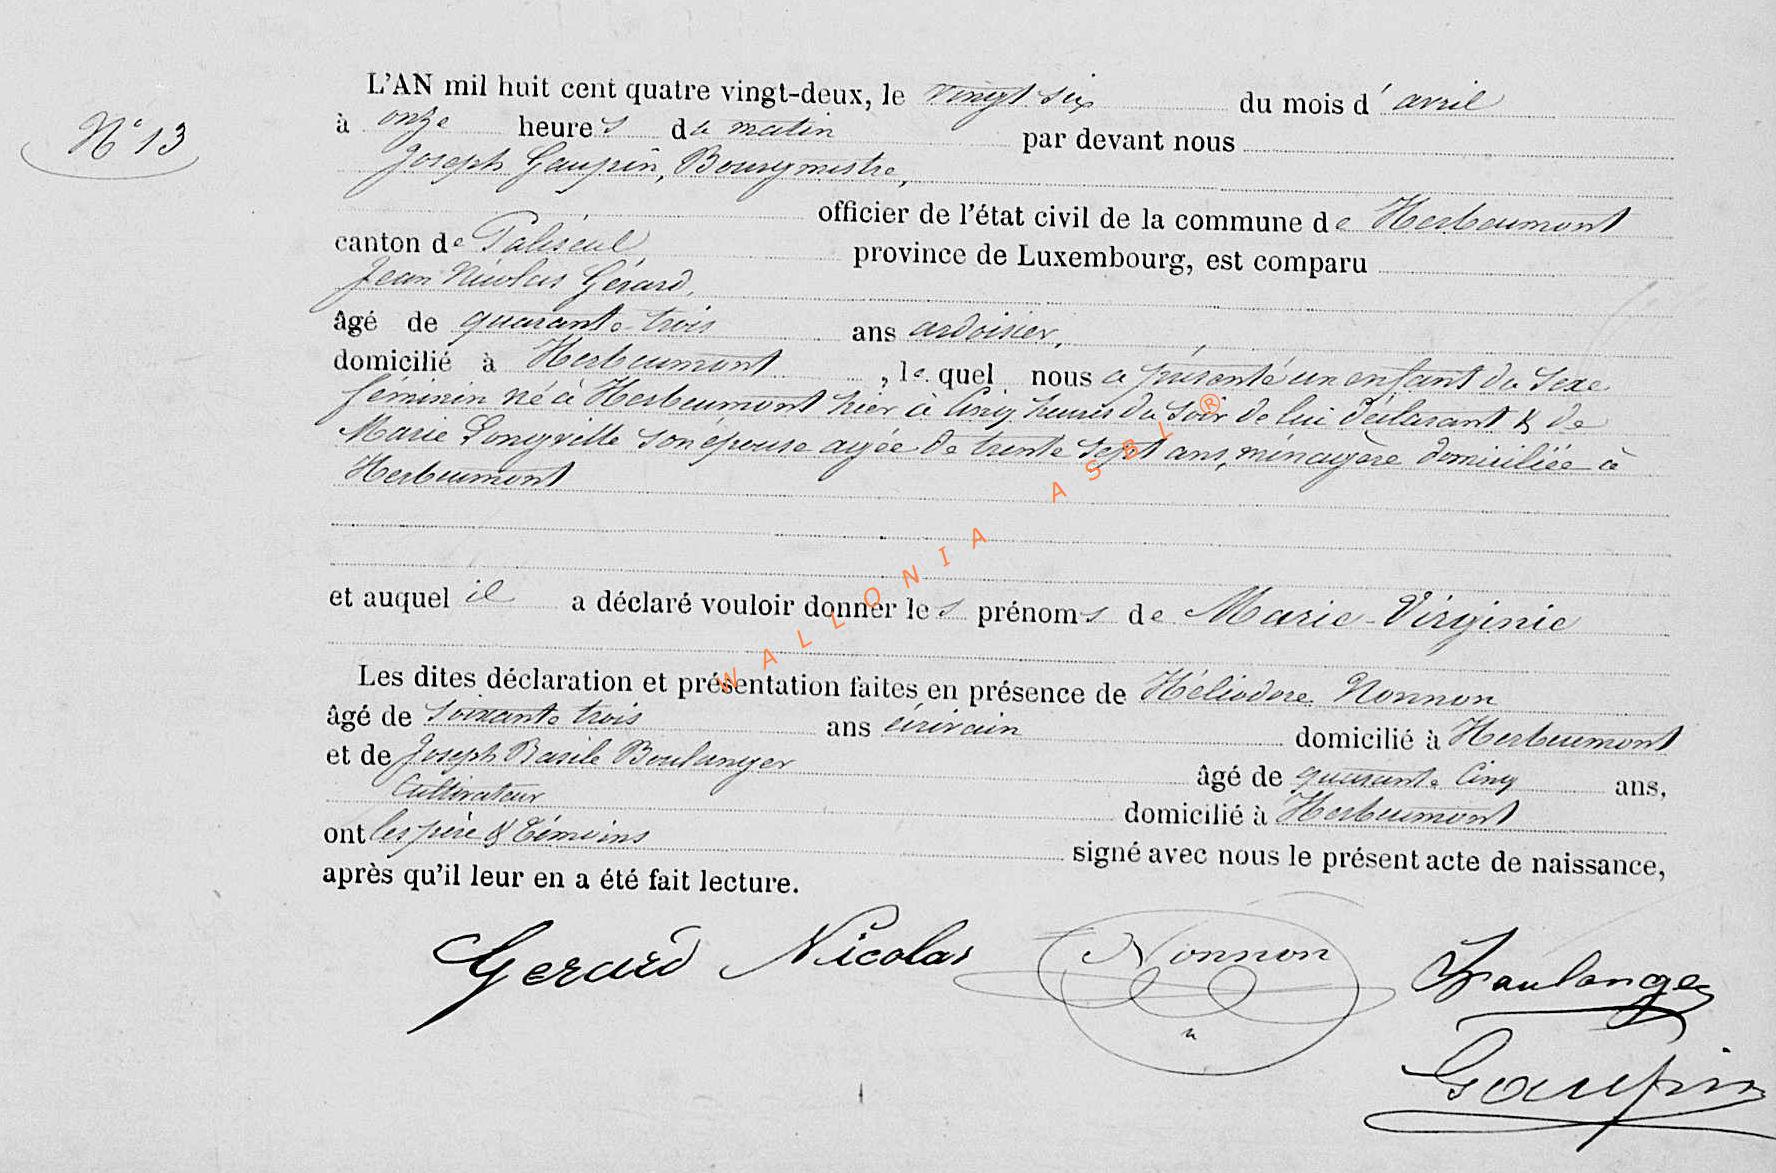 N° 13
L'AN mil huit cent quatre vingt-deux, le vingt six du mois d'avril
à onze heures du matin par devant nous
Joseph Gaupin, Bourgmestre,
officier de l'état civil de la commune de Herbeumont
canton de Paliseul province de Luxembourg, est comparu
Jean Nicolas Gérard,
âgé de quarante trois ans ardoisier,
domicilié à Herbeumont, lequel nous a présenté un enfant du sexe
féminin né à Herbeumont hier à cinq heures du soir de lui déclarant & de
Marie Longville son épouse agée de trente sept ans, ménagère domiciliée à
Herbeumont
et auquel il a déclaré vouloir donner les prénoms de Marie-Virginie
Les dites déclaration et présentation faites en présence de Héliodore Nonnon
âgé de soixante trois ans écrivain domicilié à Herbeumont
et de Joseph Basile Boulanger âgé de quarante cinq ans,
cultivateur domicilié à Herbeumont
ont les père & témoins signé avec nous le présent acte de naissance,
après qu'il leur en a été fait lecture.
Gerard Nicolas Nonnon Boulanger
Gaupin
WALLONIA ASBL ®